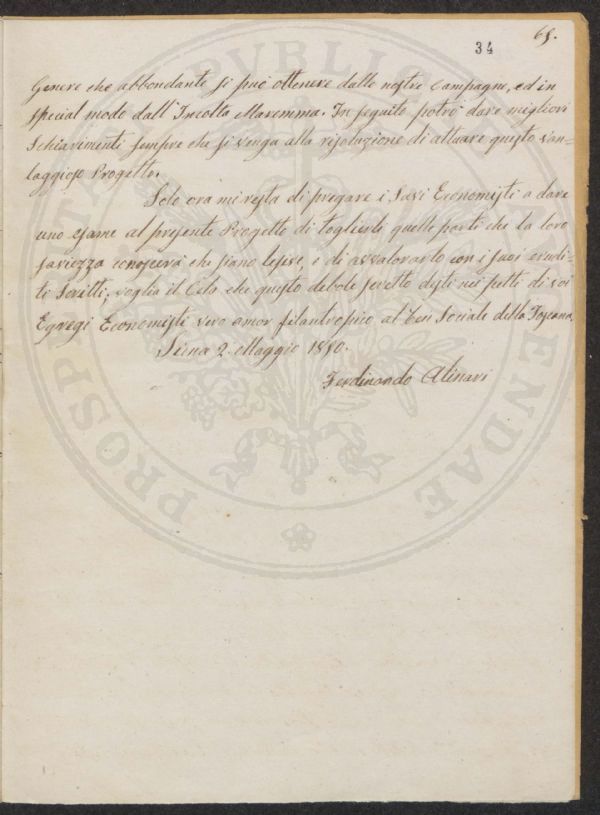 34
65.
Genere che abbondante si può ottenere dalle nostre Campagne, ed in
special modo dall'Incolta Maremma. In seguito potrò dare migliori
Schiarimenti sempre che si venga alla risoluzione di attuare questo Van-
taggioso Progetto.
Solo ora mi resta di pregare i Savi Economisti a dare
uno esame al presente Progetto di togliersi quelle parti che la loro
saviezza conoscerà che siano lesive, e di avvalorarlo con i suoi erudi-
ti Scritti, voglia il Cielo che questo debole scritto desti nei petti di voi
Egregi Economisti vero amor filantropico al ben Sociale della Toscana.
Siena 2. Maggio 18
Ferdinando Alinari
PVBLICA
PROSPERITATI
AVGENDAE